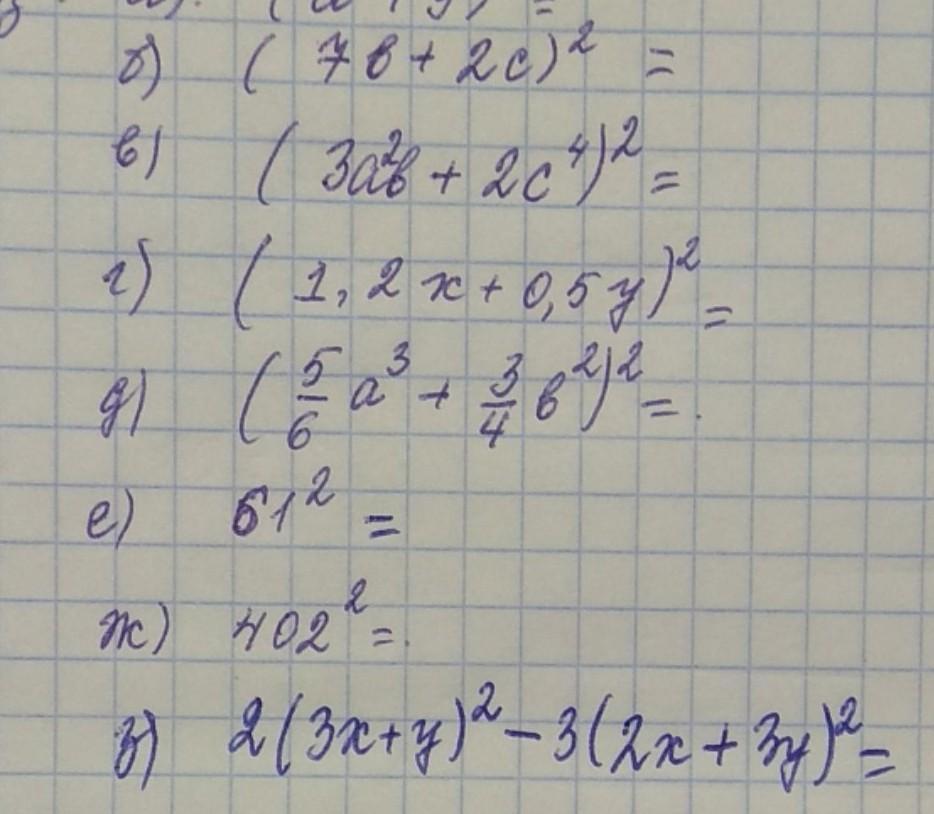 б) (7в + 2c)² =
в) (3a²в + 2c⁴)² =
г) (1,2x + 0,5y)² =
д) (5/6 a³ + 3/4 в²)² =
е) 61² =
ж) 402² =
з) 2(3x+y)² - 3(2x + 3y)² =